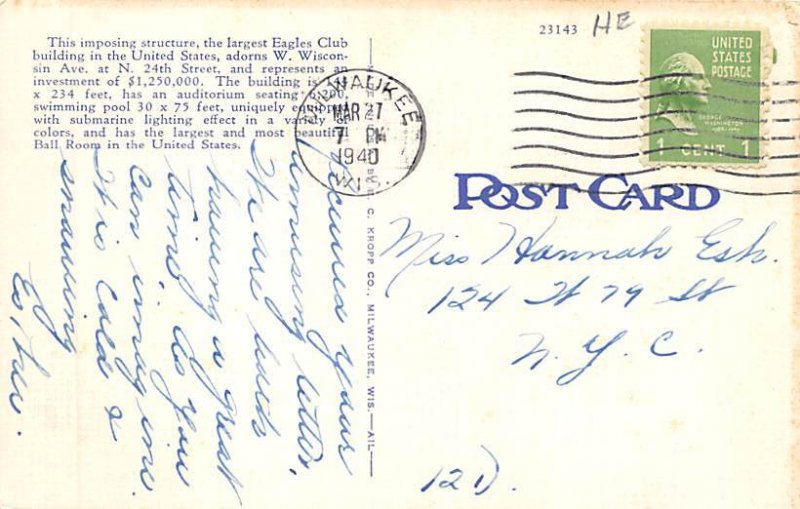 This imposing structure, the largest Eagles Club
building in the United States, adorns W. Wiscon-
sin Ave. at N. 24th Street, and represents an
investment of $1,250,000. The building is
x 234 feet, has an auditorium seating 6,200,
swimming pool 30 x 75 feet, uniquely equipped
with submarine lighting effect in a variety of
colors, and has the largest and most beautiful
Ball Room in the United States.
23143
HE
UNITED
STATES
POSTAGE
GEORGE
WASHINGTON
1 CENT 1
MILWAUKEE
MAR 27
7 PM
1940
WIS.
POST CARD
E. C. KROPP CO., MILWAUKEE, WIS.
Received your
amusing letter.
We are both
having a great
time as you
can imagine.
It is cold &
snowing
Miss Hannah Esh.
124 W 79 St
N. Y. C.